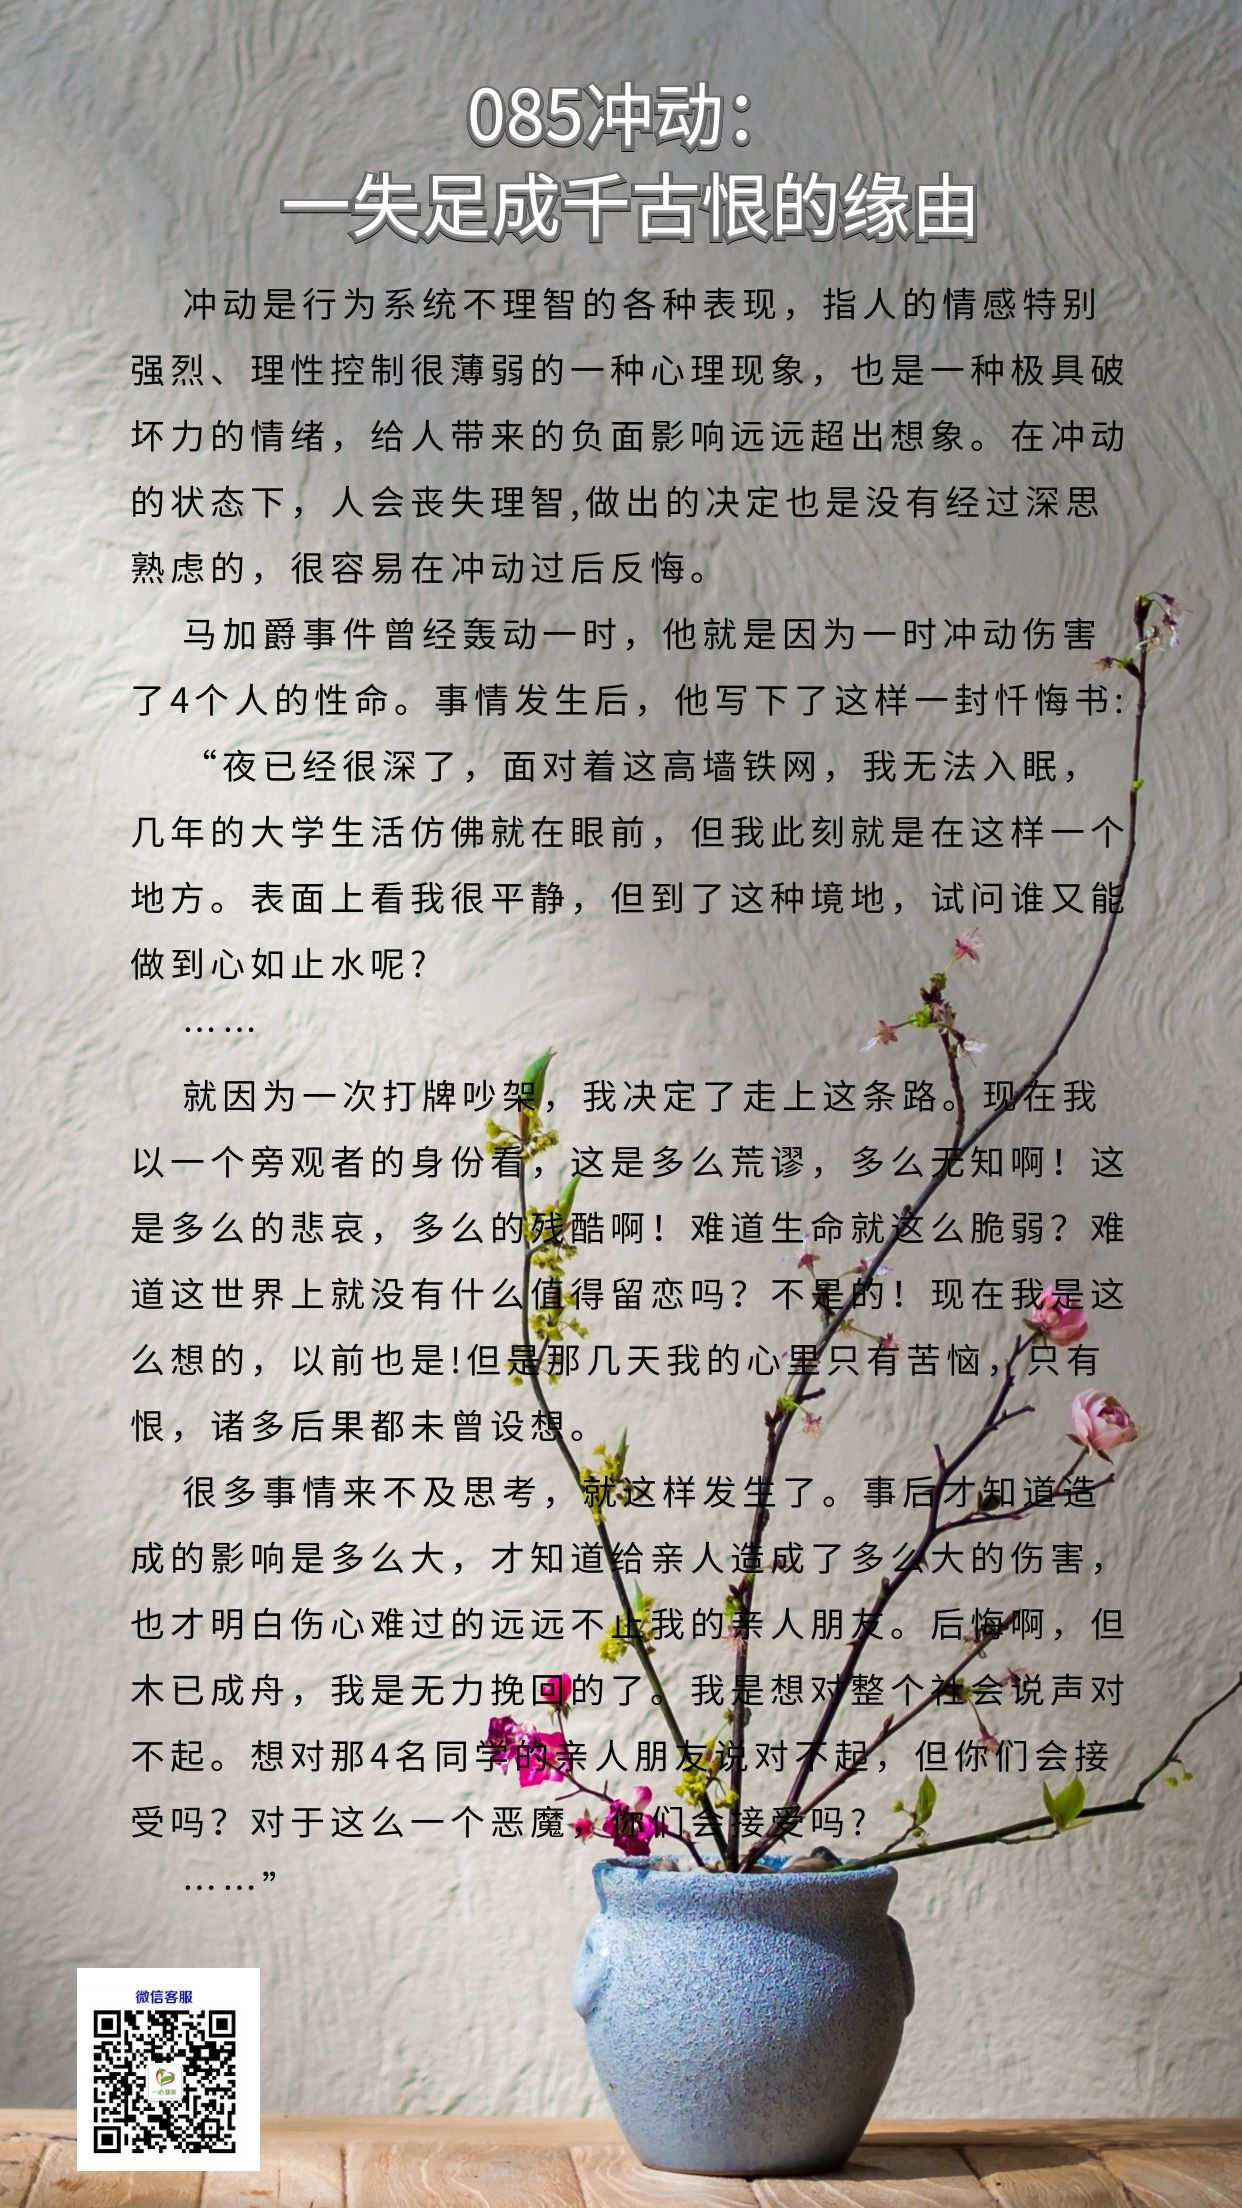 085冲动：
一失足成千古恨的缘由
冲动是行为系统不理智的各种表现，指人的情感特别
强烈、理性控制很薄弱的一种心理现象，也是一种极具破
坏力的情绪，给人带来的负面影响远远超出想象。在冲动
的状态下，人会丧失理智,做出的决定也是没有经过深思
熟虑的，很容易在冲动过后反悔。
马加爵事件曾经轰动一时，他就是因为一时冲动伤害
了4个人的性命。事情发生后，他写下了这样一封忏悔书:
“夜已经很深了，面对着这高墙铁网，我无法入眠，
几年的大学生活仿佛就在眼前，但我此刻就是在这样一个
地方。表面上看我很平静，但到了这种境地，试问谁又能
做到心如止水呢?
……
就因为一次打牌吵架，我决定了走上这条路。现在我
以一个旁观者的身份看，这是多么荒谬，多么无知啊！这
是多么的悲哀，多么的残酷啊！难道生命就这么脆弱？难
道这世界上就没有什么值得留恋吗？不是的！现在我是这
么想的，以前也是!但是那几天我的心里只有苦恼，只有
恨，诸多后果都未曾设想。
很多事情来不及思考，就这样发生了。事后才知道造
成的影响是多么大，才知道给亲人造成了多么大的伤害，
也才明白伤心难过的远远不止我的亲人朋友。后悔啊，但
木已成舟，我是无力挽回的了。我是想对整个社会说声对
不起。想对那4名同学的亲人朋友说对不起，但你们会接
受吗？对于这么一个恶魔，你们会接受吗?
……”
微信客服
一心健康